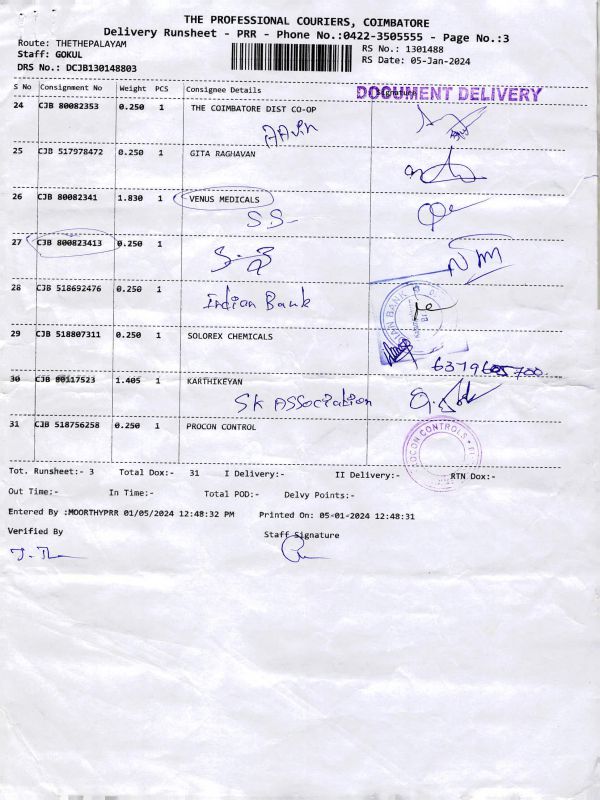 THE PROFESSIONAL COURIERS, COIMBATORE
Delivery Runsheet - PRR - Phone No.:0422-3505555 - Page No.:3
Route: THETHEPALAYAM
RS No.: 1301488
Staff: GOKUL
RS Date: 05-Jan-2024
DRS No.: DCJB130148803
S No Consignment No Weight PCS Consignee Details Signature
DOCUMENT DELIVERY
24 CJB 80082353 0.250 1 THE COIMBATORE DIST CO-OP
25 CJB 517978472 0.250 1 GITA RAGHAVAN
26 CJB 80082341 1.830 1 VENUS MEDICALS
SS
27 CJB 800823413 0.250 1
28 CJB 518692476 0.250 1
Indian Bank
29 CJB 518807311 0.250 1 SOLOREX CHEMICALS
30 CJB 80117523 1.405 1 KARTHIKEYAN
SK ASSociation
31 CJB 518756258 0.250 1 PROCON CONTROL
OCON CONTROLS
Tot. Runsheet:- 3 Total Dox:- 31 I Delivery:- II Delivery:- RTN Dox:-
Out Time:- In Time:- Total POD:- Delvy Points:-
Entered By :MOORTHYPRR 01/05/2024 12:48:32 PM Printed On: 05-01-2024 12:48:31
Verified By Staff Signature